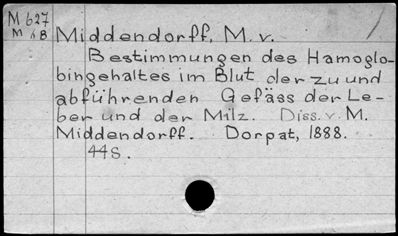 M 627
M 6B
Middendorff, M. v.
Bestimmungen des Hamoglo-
bingehaltes im Blut der zu und
abführenden Gefäss der Le-
ber und der Milz. Diss. v. M.
Middendorff. Dorpat, 1888.
44 S.